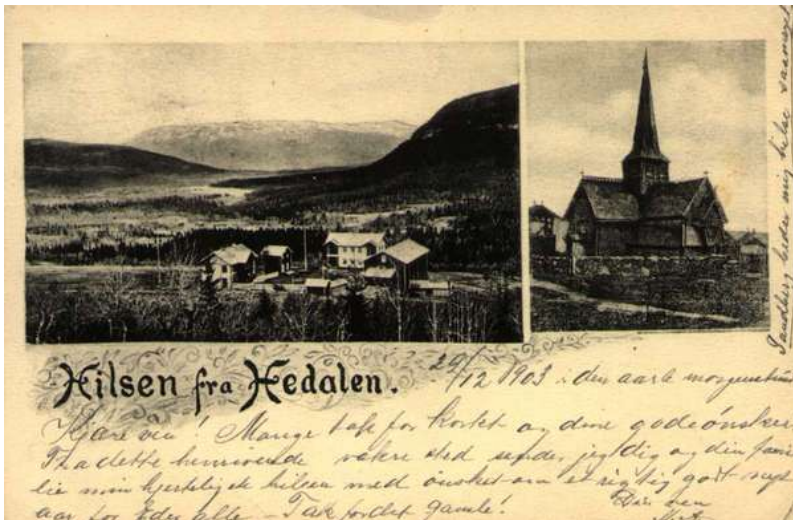 Hilsen fra Hedalen.
29/12 1903 i den aarle morgenstund
Kjære ven! Mange tak for kortet og dine gode ønsker
Fra dette henrivende vakre sted sender jeg dig og din fami
lie min hjerteligste hilsen med ønsket om et rigtig godt nyt
aar for Eder alle – Tak for det gamle!
Din ven
Sandberg beder mig hilse saameget